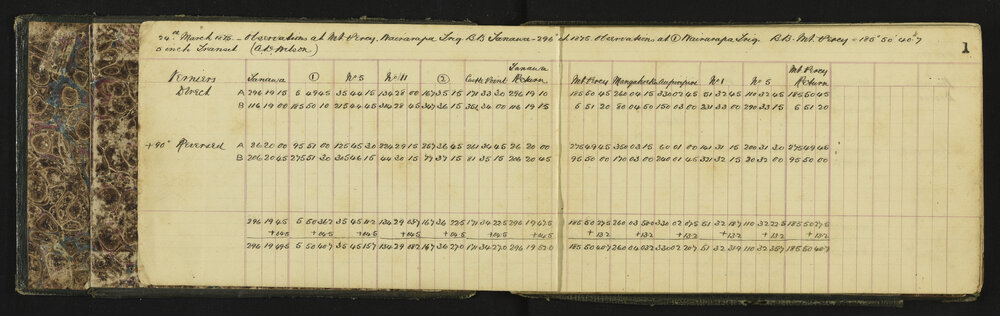 24th March 1875 - Observations at Mt. Percy, Wairarapa Trig. B.B. Tanawa - 296° 1875. Observations at ① Wairarapa Trig. B.B. Mt. Percy - 185° 50' 40".7
5 inch Transit (A.D. Wilson)
1
Verniers Tanawa ① No 5 No 11 ② Castle Point Tanawa Return Mt. Percy No 1 No 5 Mt. Percy Return
Direct A 296 19 15 5 49 45 35 44 15 134 28 00 167 35 15 171 33 30 296 19 10 185 50 45 260 04 15 330 02 45 51 32 45 110 32 45 185 50 45
B 116 19 00 185 50 10 215 44 45 28 45 347 36 15 34 00 116 19 15 5 51 20 80 04 50 150 03 00 231 33 00 290 33 15 5 51 20
+90° Reversed A 26 20 00 95 51 00 125 45 30 224 29 15 257 36 45 261 34 45 26 20 00 275 49 45 350 03 15 60 01 00 141 31 15 200 31 30 275 49 45
B 206 20 45 275 51 30 305 46 15 44 30 15 77 37 15 81 35 15 206 20 45 95 50 00 170 03 00 240 01 45 321 32 15 20 32 00 95 50 00
296 19 45 5 50 36.2 35 45 11.2 134 29 03.7 167 36 22.5 171 34 22.5 296 19 47.5 185 50 27.5 260 03 50 330 02 07.5 51 32 18.7 110 32 22.5 185 50 27.5
+04.5 +04.5 +04.5 +04.5 +04.5 +13.2 +13.2 +13.2 +13.2 +13.2 +13.2
296 19 49.5 5 50 40.7 35 45 15.7 134 29 08.2 167 36 27.0 171 34 27.0 296 19 52.0 185 50 40.7 260 04 03.2 330 02 20.7 51 32 31.9 110 32 35.7 185 50 40.7